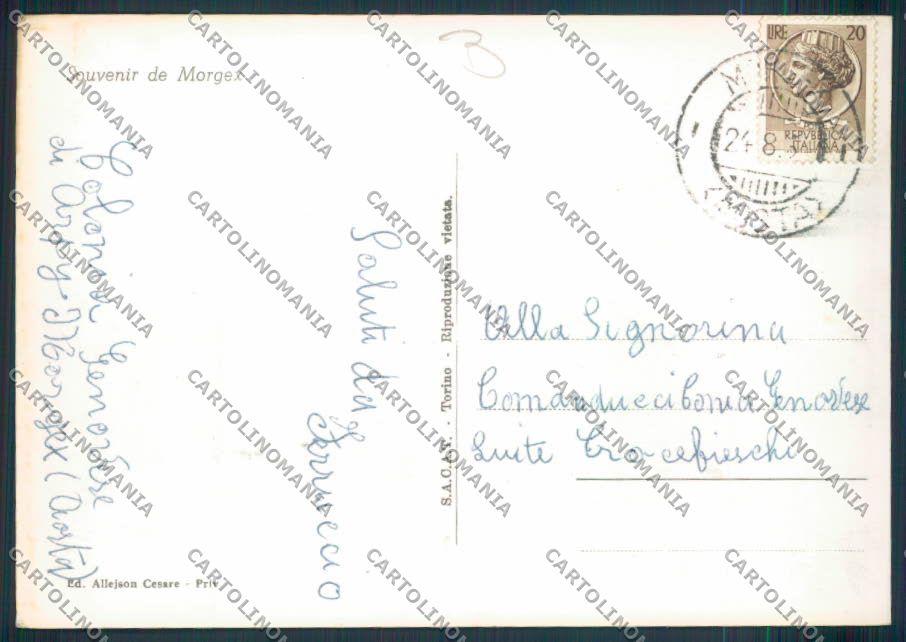 Souvenir de Morgex
LIRE 20
REPUBBLICA
ITALIANA
24 8
Colonia Genovese
di Arpy-Morgex (Aosta)
Saluti da
Ferruccio
S.A.C.A.T. - Torino - Riproduzione vietata.
Alla Signorina
Genovese
Crocefieschi
Ed. Allejson Cesare - Priv.
CARTOLINOMANIA